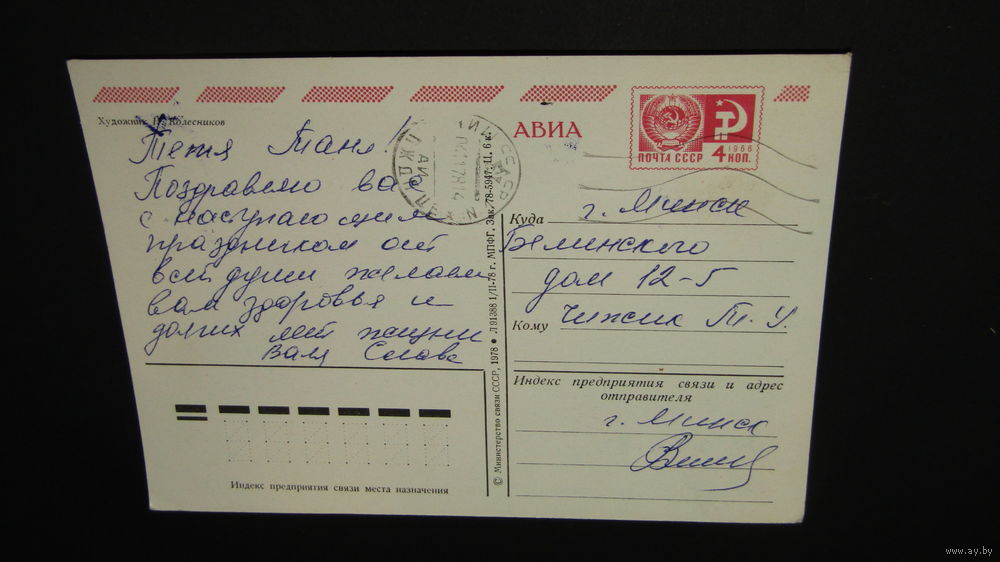 Художник П. Колесников
Тетя Таня!
Поздравляю вас
с наступающим
праздником от
всей души желаем
вам здоровья и
долгих лет жизни
Валя Слава
Индекс предприятия связи места назначения
© Министерство связи СССР, 1978 ● Л 91388 1/II-78 г. МПФГ. Зак. 78-5947. Ц. 6 к.
АВИА
ПОЧТА СССР
1966
4 КОП.
Куда г. Минск
Белинского
дом 12-5
Кому Чижик Т. У.
Индекс предприятия связи и адрес
отправителя
г. Минск
www.ay.by